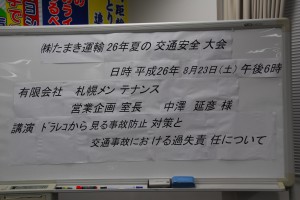 ㈱たまき運輸 26年夏の 交通安全 大会
日時 平成26年 8月23日(土) 午後6時
有限会社 札幌メン テナンス
営業企画 室長 中澤 延彦 様
講演 ドラレコから 見る事故防止 対策と
交通事故にお ける過失責 任について